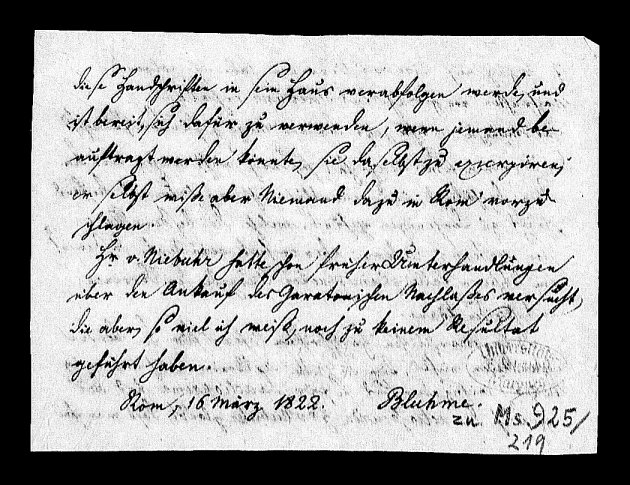 diese Handschriften in sein Haus verabfolgen werde, und
ist bereit, sich dafür zu verwenden, wenn jemand be-
auftragt werden könnte, sie daselbst zu excerpiren;
er selbst wisse aber Niemand dazu in Rom vorzu
schlagen.
Hr. v. Niebuhr hatte schon früher Unterhandlungen
über den Ankauf des Garatonischen Nachlaßes versucht,
die aber, so viel ich weiß, noch zu keinem Resultat
geführt haben.
Rom, 16 März 1822. Bluhme.
zu Ms. 925/
219